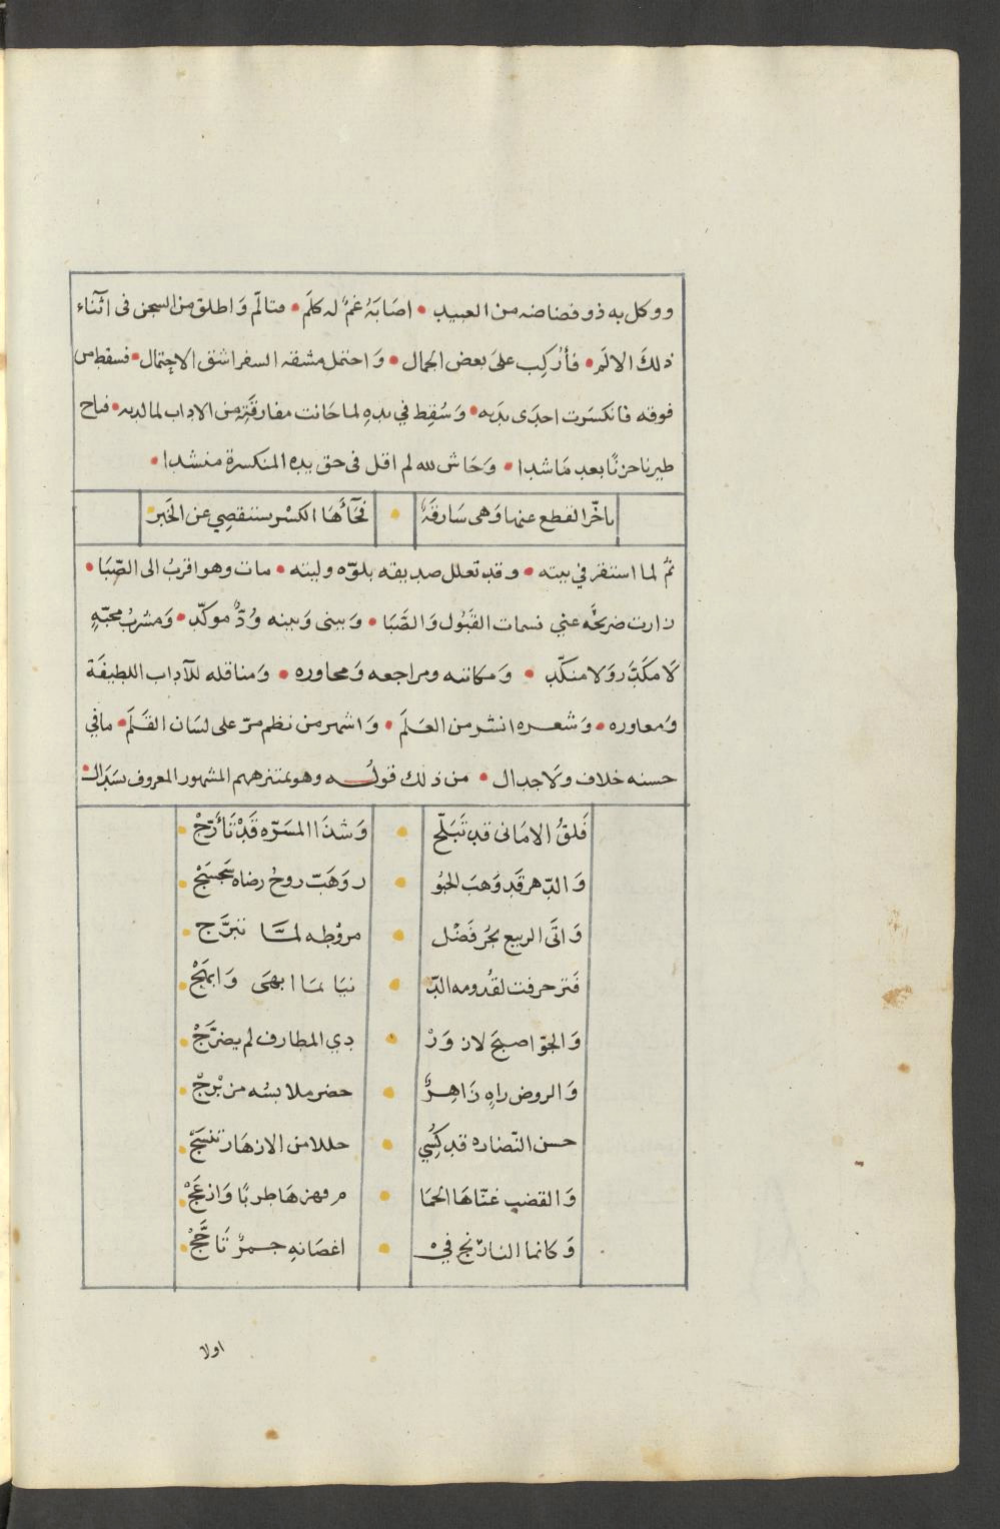 ووكل به ذو فضاضه من العبيد • اصَابَهُ غمٌ له كلَم • متالّم وَاطلق من السجن فى اثنآء
ذلكَ الالَم • فأُركِب علىَ بعض الجمال • وَاحتمل مشقه السفر اشق الاحِتمال • فسقط من
فوقه فانكسَرت احدَى يدَيه • وَسُقِط في يدهِ لما حَانت مفارقَة من الاداب لما لديه • فباح
طيرنا حزنًا بعد مَا شدا • وَحَاش لله لم اقل فى حق يده المنكسرة منشدا •
ما اخّر القطع عنها وَهى سَارقَةٌ • فجَآءَهَا الكسْر يستقصِي عن الخَبر
ثمّ لما استقر في بيته • وقد تعلل صديقه بلوّه وليته • مات وهو اقربُ الى الصّبَا •
زارت ضريحَه عني نسمات القَبُول وَالصَّبَا • وَبينى وَبينه وُدٌّ موكّد • وَمشربُ محبّهٍ
لَا مكَدَّر وَلا منكّد • وَمكاتبه ومراجعه وَمحاوره • وَمناقله للآداب اللطيفَة
وَمعاوره • وَشعره انشر من العَلَم • وَاشهر من نظم مرّ على لسَان القَلَم • مافي
حسنه خلاف وَلَا جدال • من ذلك قولُه وهو بمتنزههم المشهور المعروف بسَدَال
فَلقُ الامَانى قد تَبَلّج • وَشذَا المسَرّه قَدْ تَأَرّجْ
وَالدّهر قَد وَهبَ الحبُو • ر وَهَبّ روحُ رضاه سَجسَجْ
وَاتَى الربيع بحُر فَضْل • مروْطه لمَّا تبرَّج
فَتزحرفت لقُدومه الدّ • نيَا بمَا ابهَى وَابهَجْ
وَالجوّ اصبحَ لازوَرْ • دي المطارف لم يضرَّجْ
وَالروض راهِ زَاهِرٌ • خضر ملابسُه من بْرجْ
حسن النّضاره قد كُسِي • حللا من الازهَار تنسَجْ
وَالقضب غنّاهَا الحمَا • م فهزهَا طربًا وَازعَجْ
وَكانما النارنْج فيْ • اغصَانهِ جمرٌ تَاجَّجْ
اولا